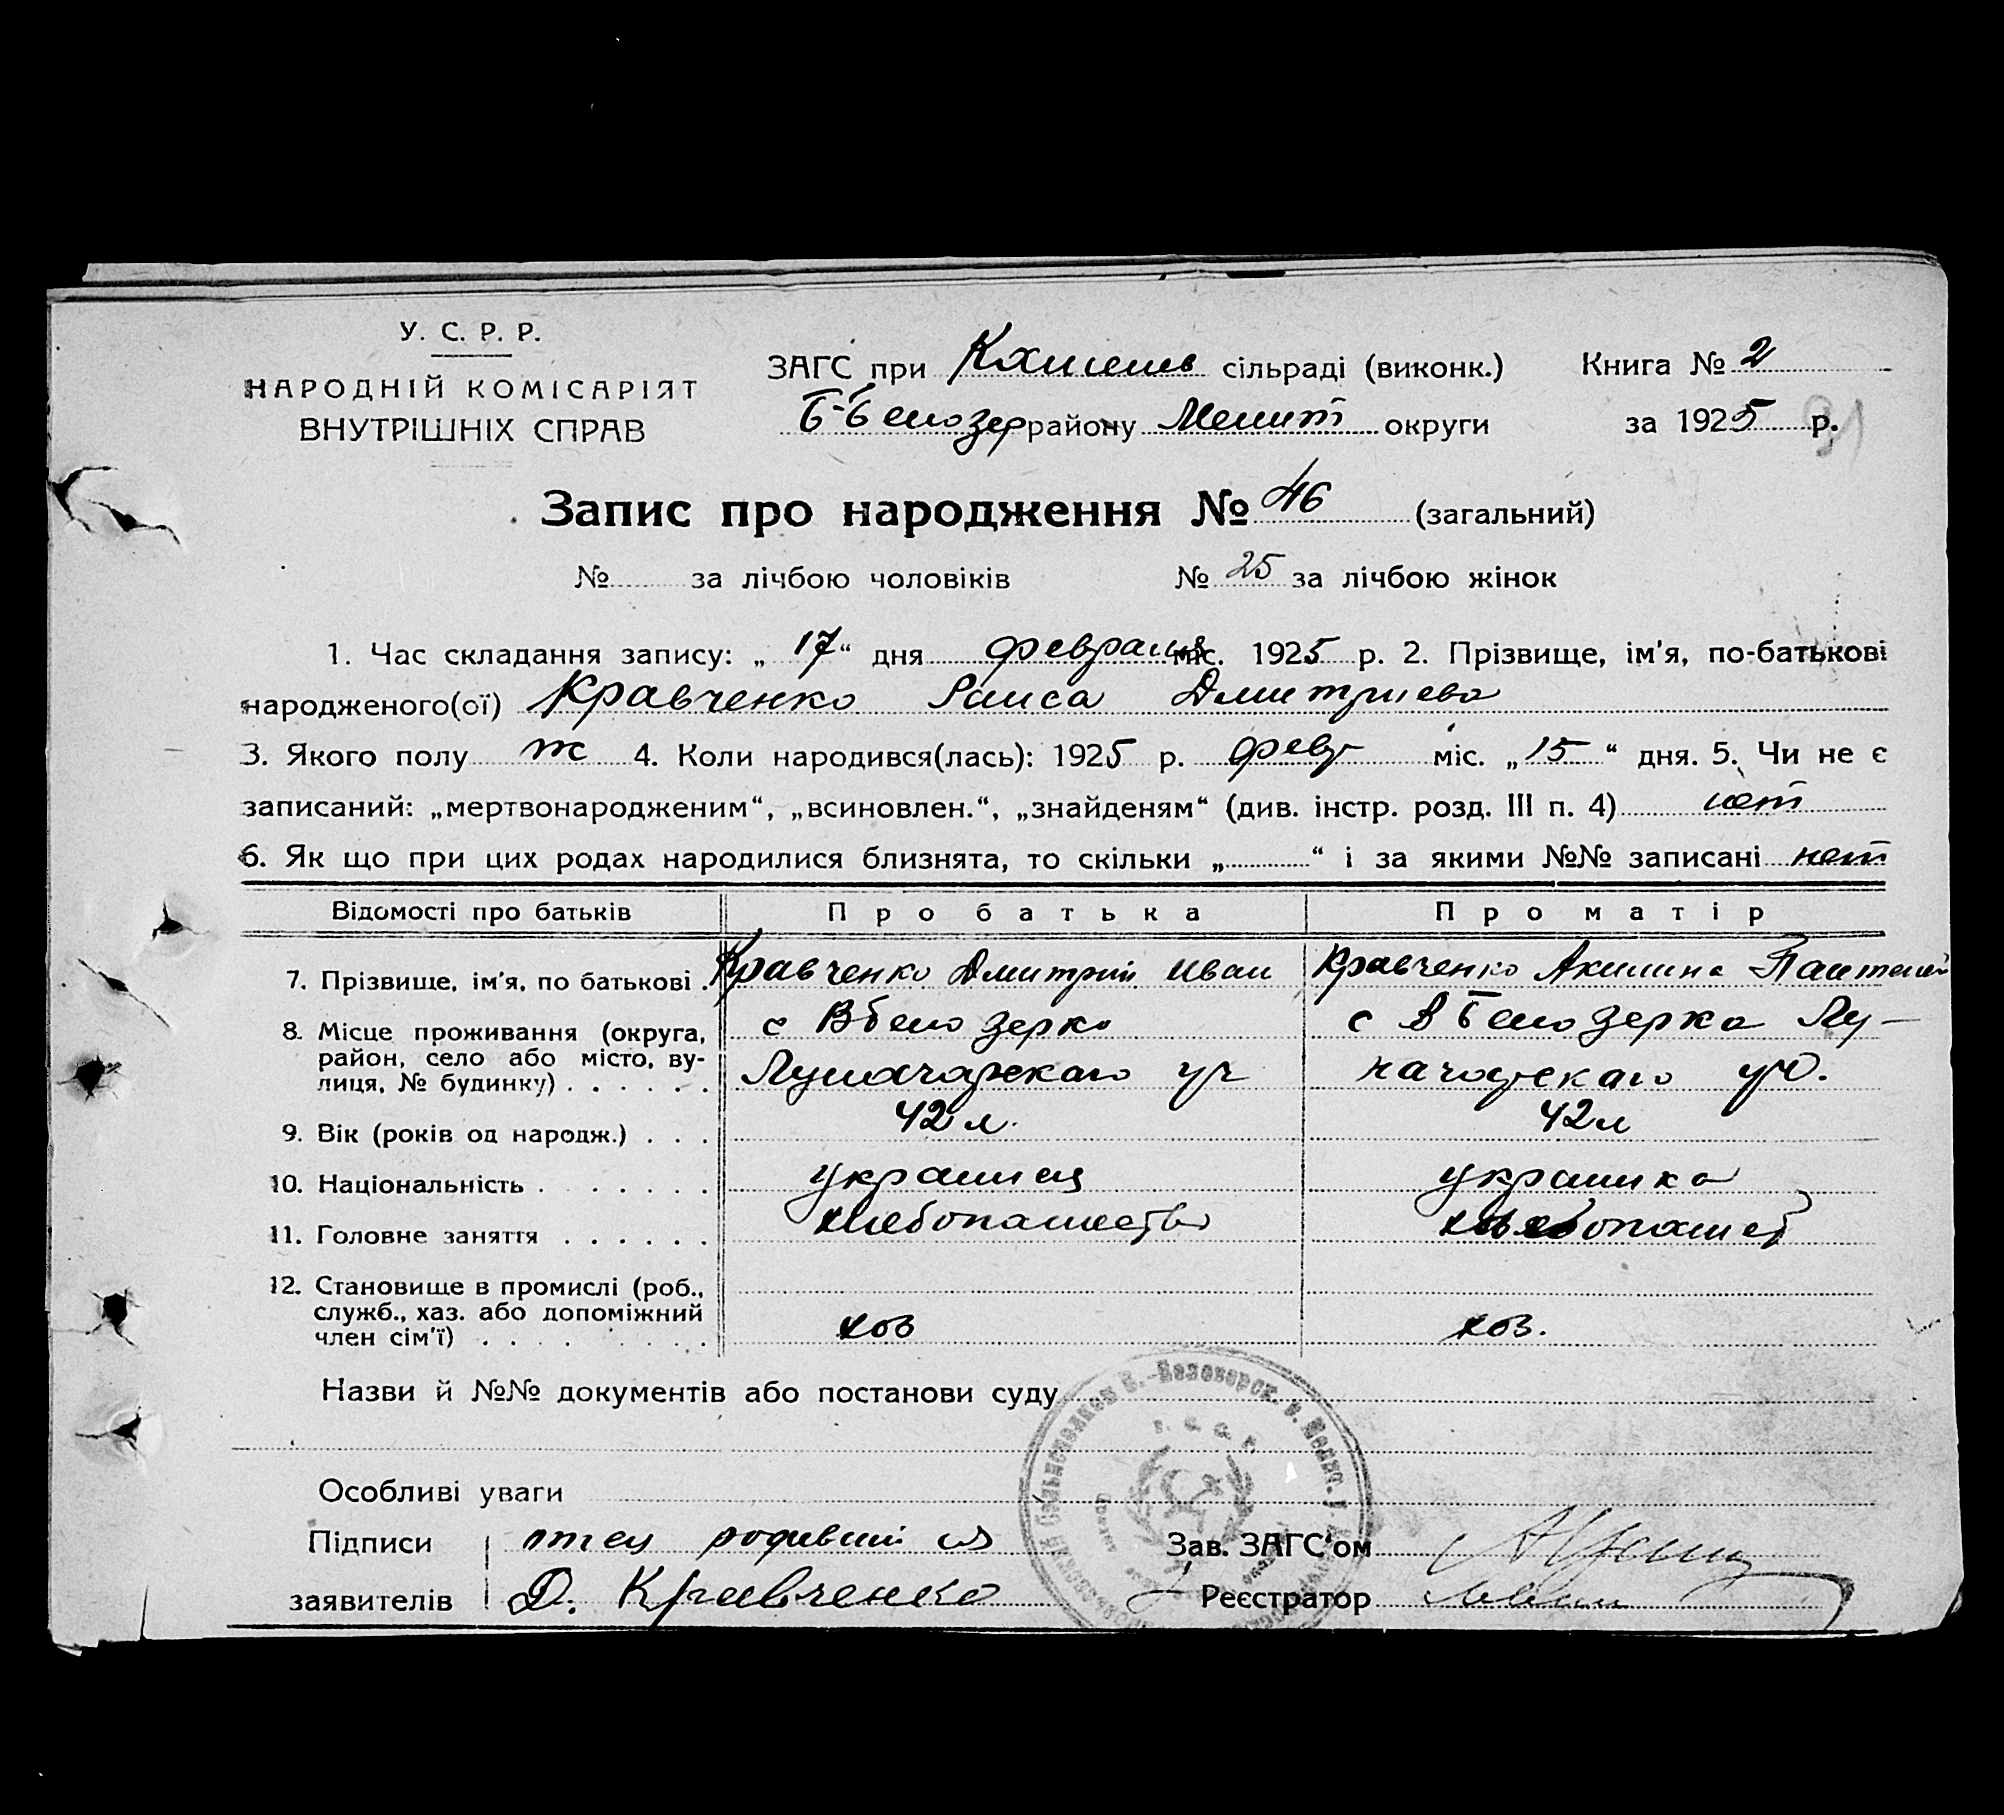 У. С. Р. Р.
НАРОДНІЙ КОМІСАРІЯТ
ВНУТРІШНІХ СПРАВ
ЗАГС при сільраді (виконк.)
району Мелит округи
Книга № 2
за 1925 р.
91
Запис про народження № 46 (загальний)
№ за лічбою чоловіків № 25 за лічбою жінок
1. Час складання запису: „ 17 “ дня февраля міс. 1925 р. 2. Прізвище, ім'я, по-батькові
народженого(ої) Кравченко Раиса Дмитриева
3. Якого полу ж 4. Коли народився(лась): 1925 р. февр міс. „ 15 “ дня. 5. Чи не є
записаний: „мертвонародженим“, „всиновлен.“, „знайденям“ (див. інстр. розд. III п. 4) нет
6. Як що при цих родах народилися близнята, то скільки „ “ і за якими №№ записані нет
Відомості про батьків Про батька Про матір
7. Прізвище, ім'я, по батькові . Кравченко Дмитрий Иван Кравченко Акилина Пантелей
8. Місце проживання (округа, с Вбелозерка с В Белозерка Лу-
район, село або місто, ву-
лиця, № будинку) . . . . . . Луначарскаго уч начарскаго
9. Вік (років од народж.) . . . 42 л. 42 л
10. Національність . . . . . . . украинец украинка
11. Головне заняття . . . . . . хлебопашество хлебопашест
12. Становище в промислі (роб.,
служб., хаз. або допоміжний
член сім'ї) . . . . . . . . хоз хоз.
Назви й №№ документів або постанови суду
Особливі уваги
Підписи отец родившийся Зав. ЗАГС'ом
заявителів Д. Кравченко Реєстратор